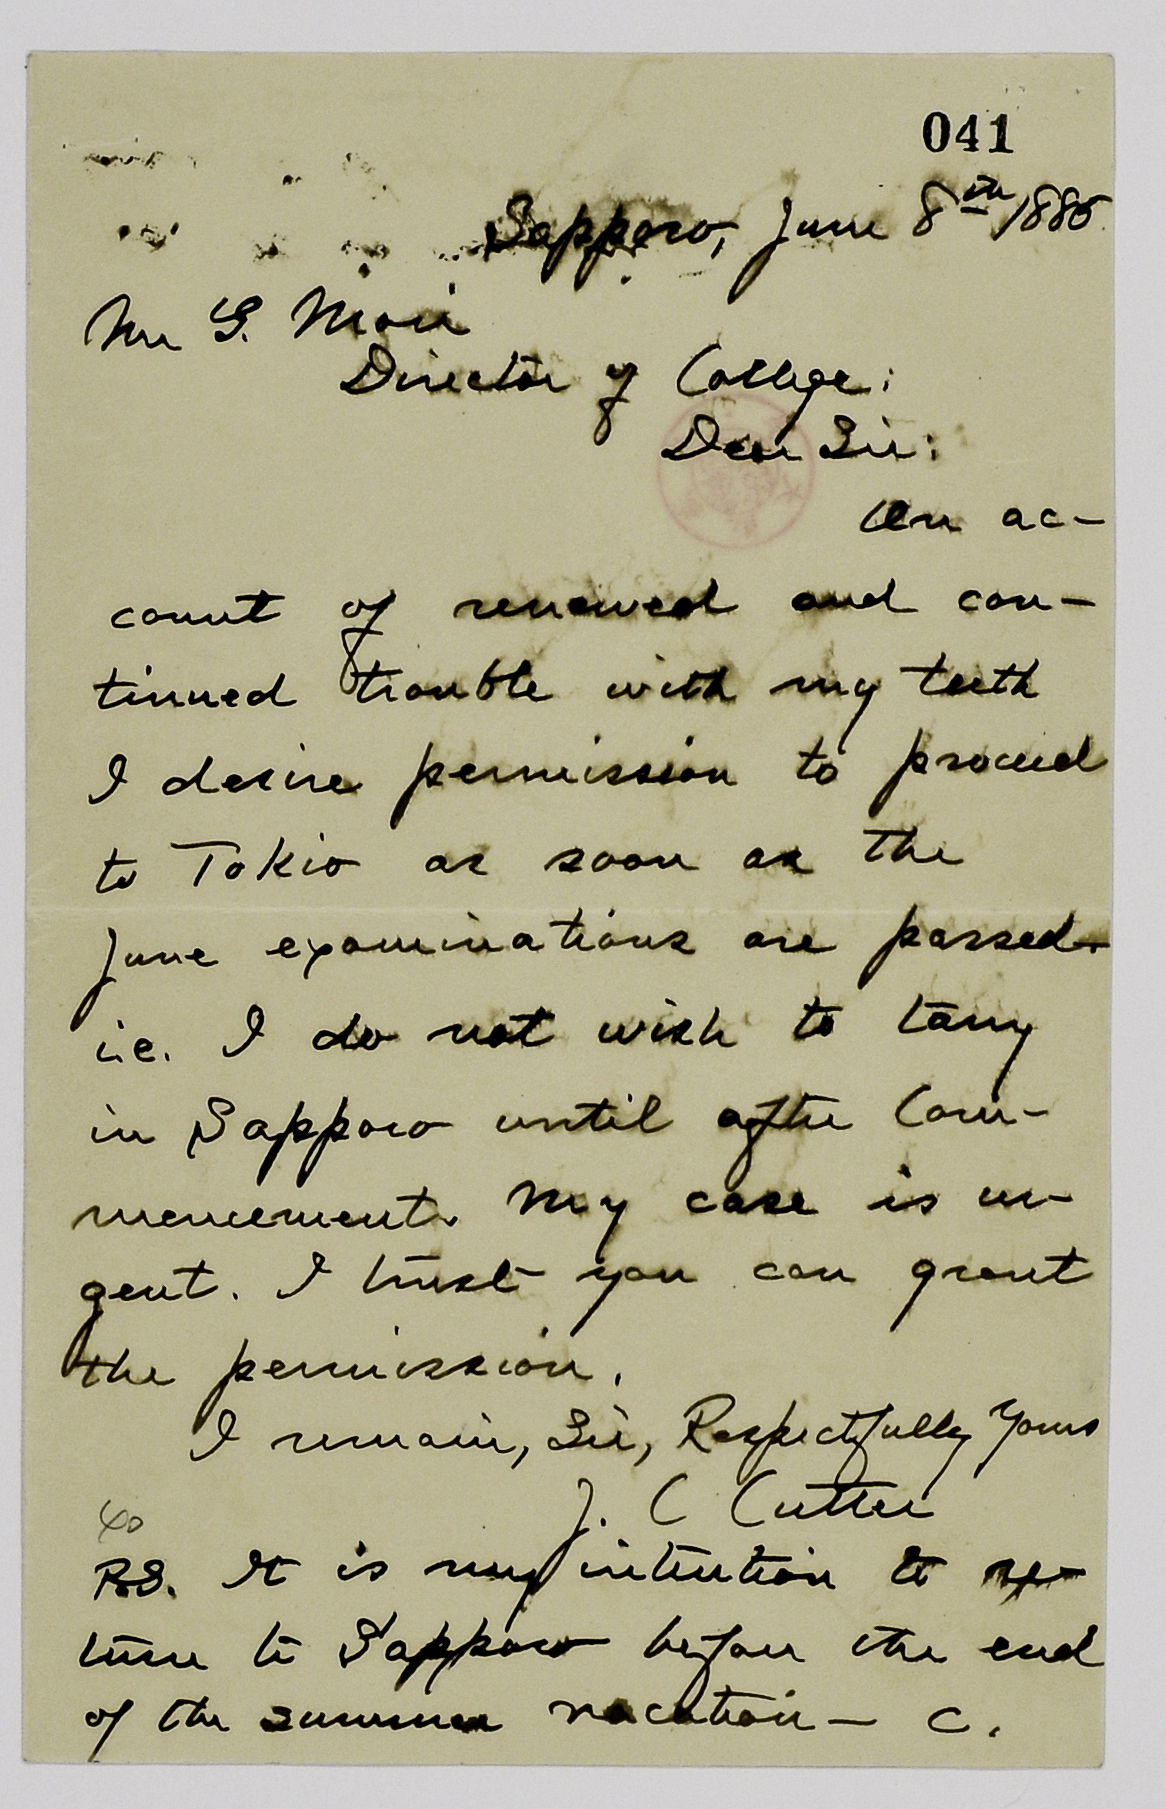 041
Sapporo, June 8th 1885
Mr G. Mori
Director of College:
Dear Sir:
On ac-
count of renewed and con-
tinued trouble with my teeth
I desire permission to proceed
to Tokio as soon as the
June examinations are passed-
i.e. I do not wish to tarry
in Sapporo until after Com-
mencement. My case is ur-
gent. I trust you can grant
the permission.
I remain, Sir, Respectfully Yours
J. C Cutter
P.S. It is my intention to re-
turn to Sapporo before the end
of the summer vacation - C.